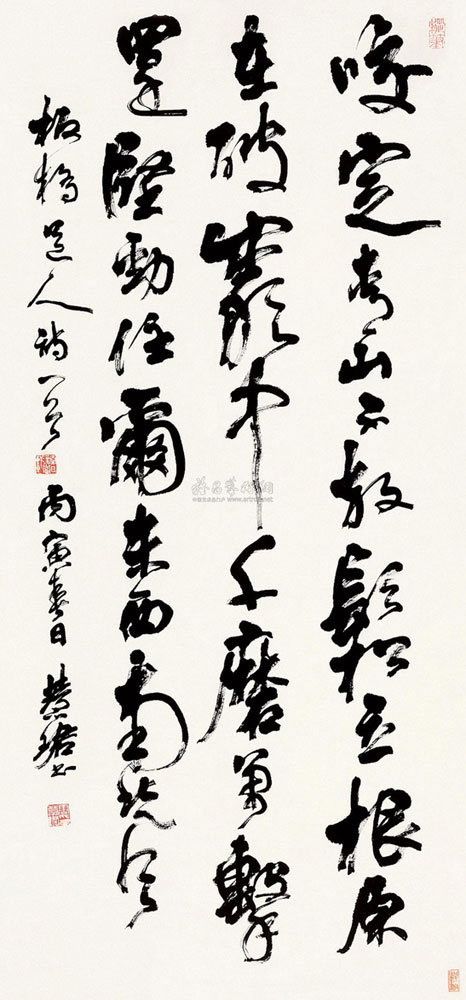 咬定青山不放鬆立根原
在破巖中千磨萬擊
還堅勁任爾東西南北風
板橋道人詩一首 丙寅春日 慧珺書